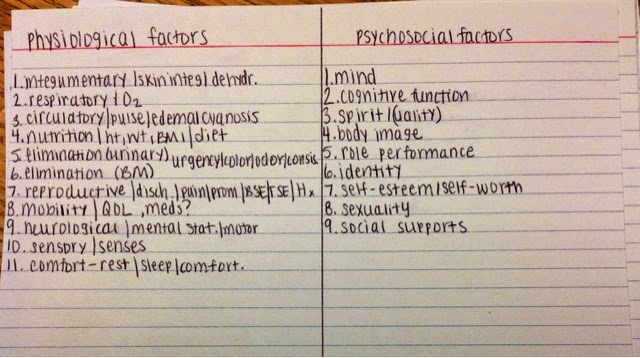 physiological factors
1. integumentary/skin integ/dehydr.
2. respiratory/O2
3. circulatory/pulse/edema/cyanosis
4. nutrition/ht, wt, BMI/diet
5. elimination (urinary) urgency/color/odor/consis
6. elimination (BM)
7. reproductive/disch./pain/prom/BSE/TSE/Hx
8. mobility/QOL, meds?
9. neurological/mental stat./motor
10. sensory/senses
11. comfort-rest/sleep/comfort.
psychosocial factors
1. mind
2. cognitive function
3. spirit/(uality)
4. body image
5. role performance
6. identity
7. self-esteem/self-worth
8. sexuality
9. social supports